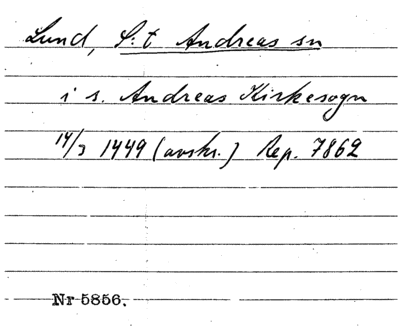 Lund, S:t Andreas sn
i s. Andreas Kirkesogn
14/3 1449 (avskr.) Rep. 7862
Nr 5856.